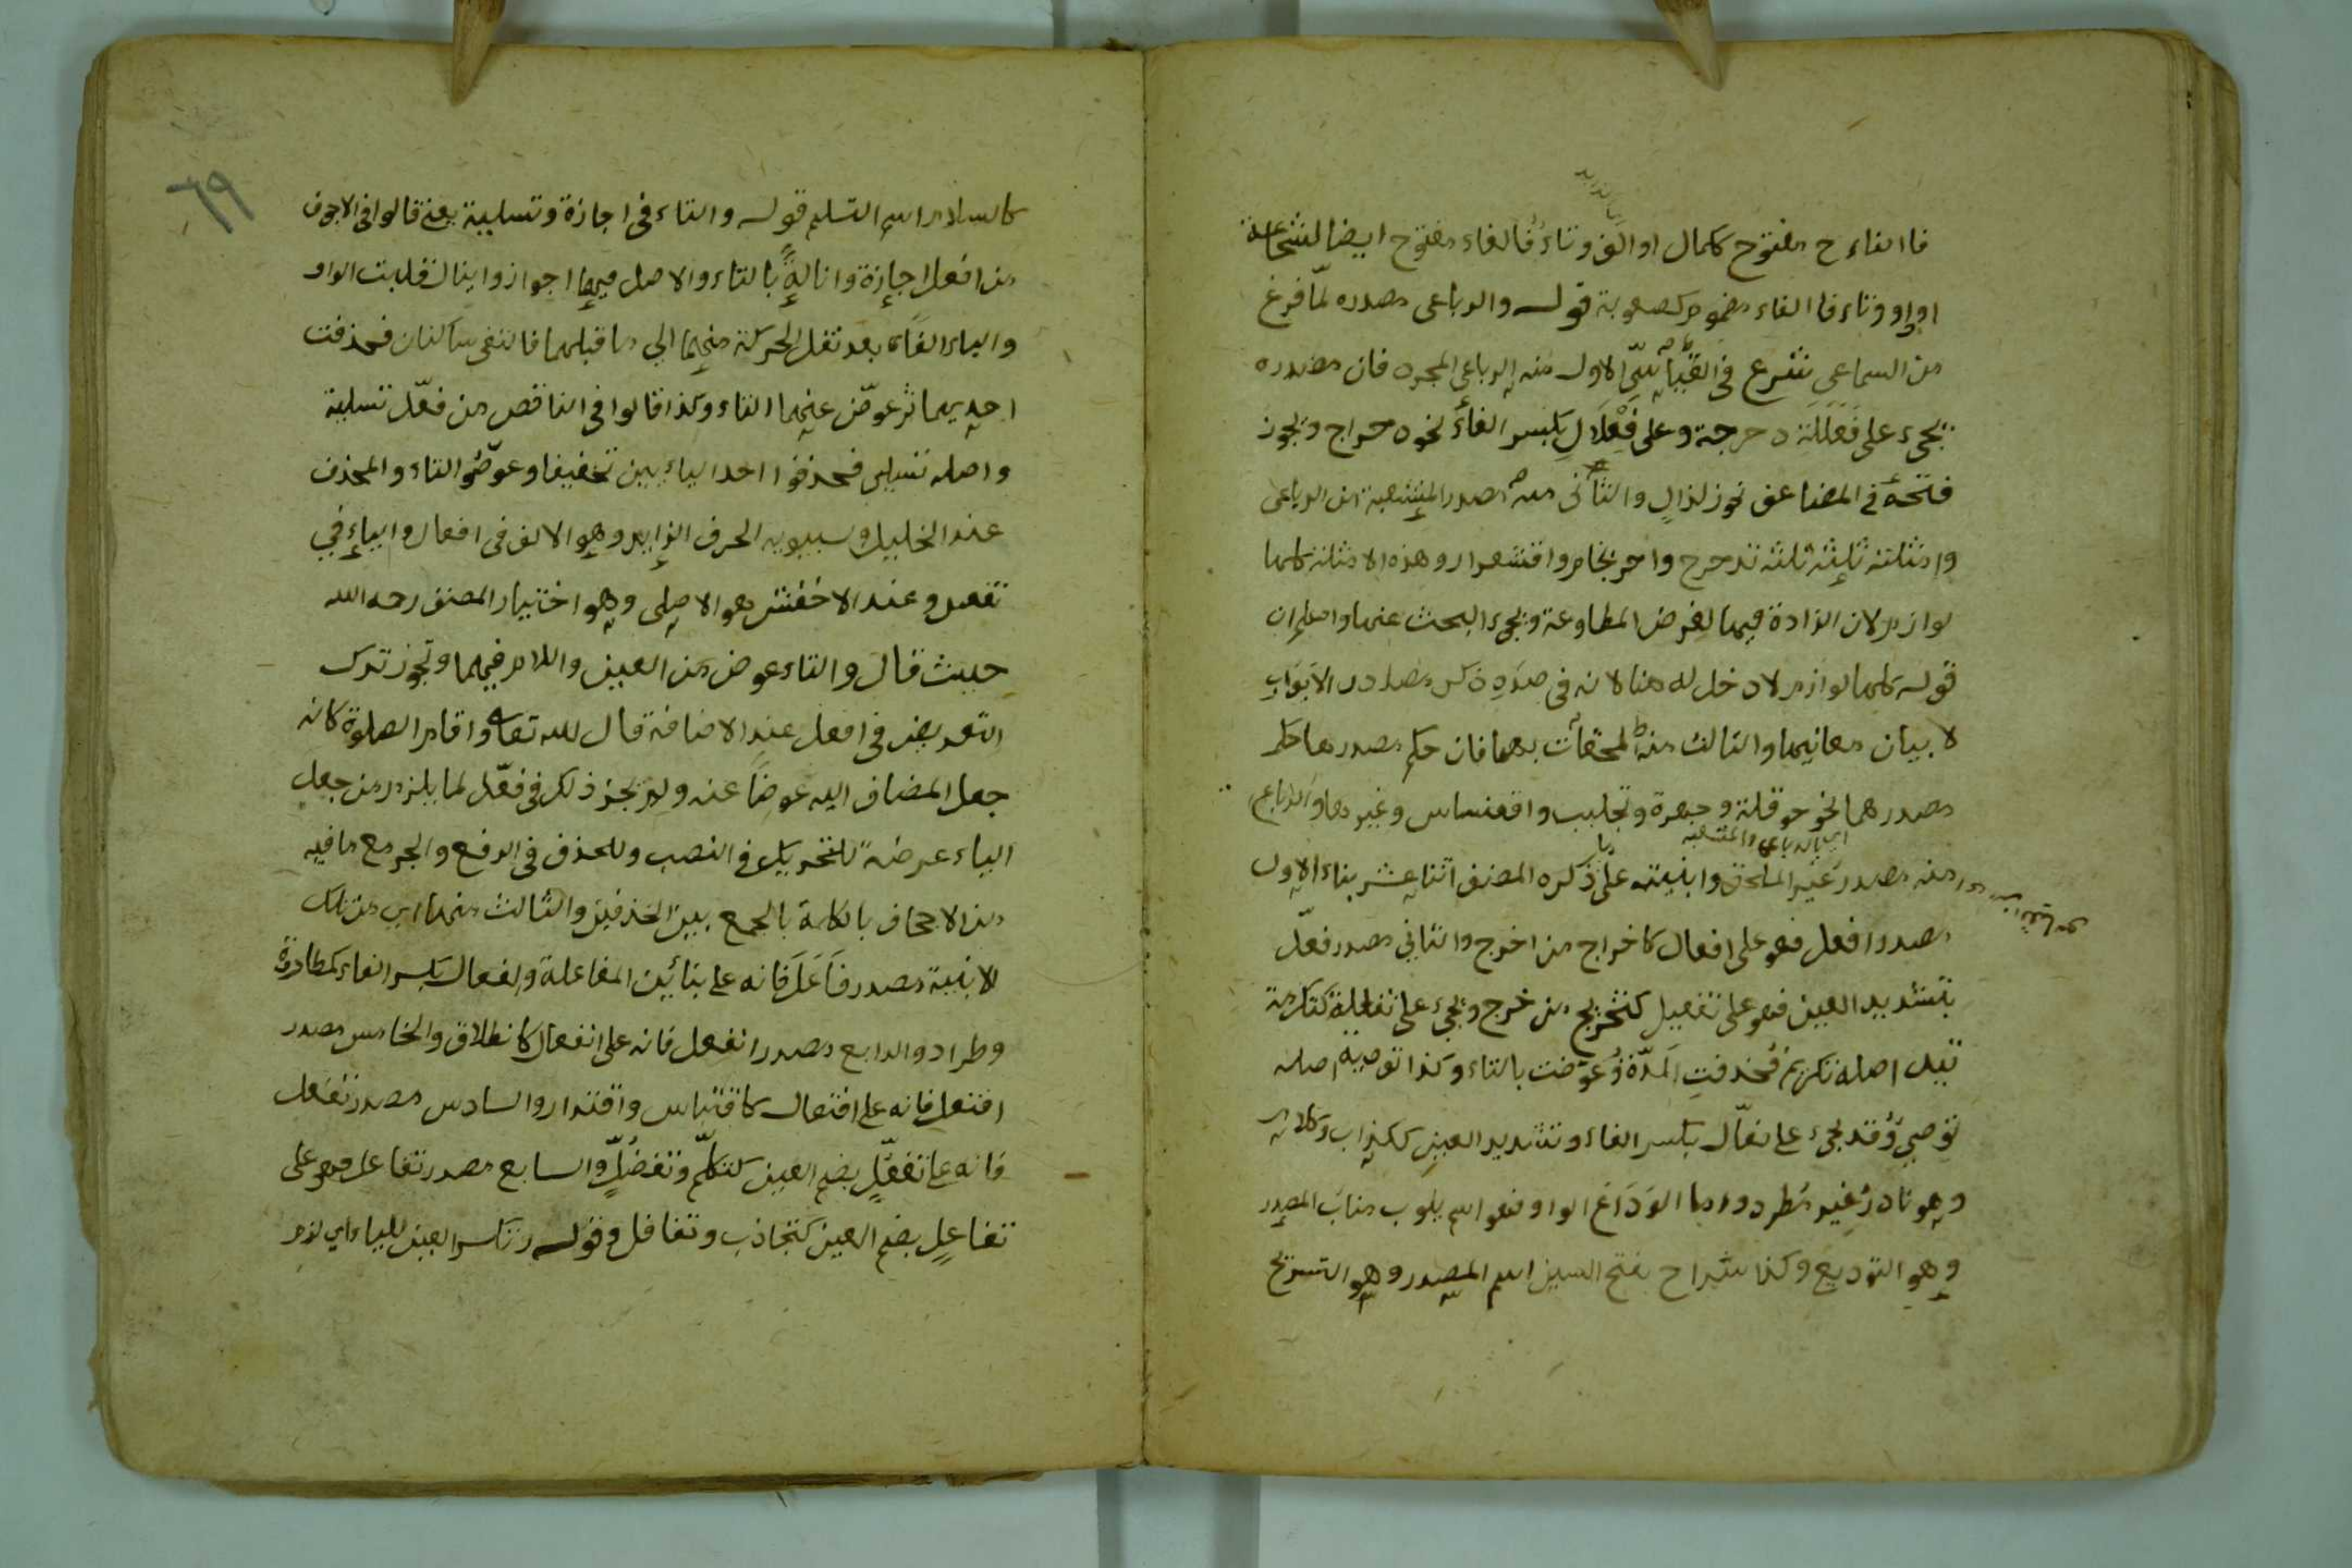 فا الفاء ح مفتوح ككمال او الف وتاء فالفاء مفتوح ايضا كشجاعة
او واو وتاء فا الفاء مضموم كصعوبة قوله والرباعى مصدره لمّا فرغ
من السماعى شرع فى القياسىّ الاول منه الرباعى المجرد فان مصدره
يجىء على فَعْلَلَة دحرجة وعلى فِعْلَالٍ بكسر الفاء نحو دحراج ويجوز
فتحه فى المضاعف نحو زلزالٍ والثانى منه مصدر المنشعبة من الرباعى
وامثلته ثلثة تدحرج واحرنجام واقشعرار وهذه الامثلة كلها
لوازم لان الزادة فيها لغرض المطاوعة ويجىء البحث عنها واعلم ان
قوله كلها لوازم لا دخل له هنا لانه فى صدد ذكر مصادر الابواب
لا بيان معانيها والثالث منه الملحقات بهما فان حكم مصدرها حكم
مصدرهما نحو حوقلة وجهورة وتجلبب واقعنساس وغيرها والرابع
منه مصدر غير الملحق وابنيته على ما ذكره المصنف اثنا عشر بناء الاول
اى بالرباعى والمنشعبة
مصدر افعل فهو على افعال كاخراج من اخرج والثانى مصدر فعّل
بتشديد العين فهو على تفعيل كتخريج من خرج ويجىء على تفعلة كتكرمة
قيل اصله تكريم فحذفت المدّة وعوّضت بالتاء وكذا توصية اصله
توصىّ وقد يجىء على فعّال بكسر الفاء وتشديد العين ككذاب وكلام
وهو نادر غير مطرد واما الوَدَاع الواو فهو اسم ينوب مناب المصدر
وهو التوديع وكذا سَراح بفتح السين اسم المصدر وهو التسريح
٦٩
كالسلام اسم التسليم قوله والتاء فى اجازة وتسلية يعنى قالوا فى الاجوف
من افعل اجازة وانالة بالتاء والاصل فيهما اجواز وانيال فقلبت الواو
والياء الفا بعد نقل الحركة منهما الى ما قبلهما فالتقى ساكنان فحذفت
احديهما ثم عوّض عنهما التاء وكذا قالوا فى الناقص من فعّل تسلية
واصله تسليى فحذفوا احد اليائين تخفيفا وعوّضوا التاء والمحذوف
عند الخليل وسيبويه الحرف الزايد وهو الالف فى افعال والياء فى
تفعيل وعند الاخفش هو الاصلى وهو اختيار المصنف رحمه الله
حيث قال والتاء عوض من العين واللام فيهما ويجوز ترك
التعويض فى افعل عند الاضافة قال لله تعا واقام الصلوة كانه
جعل المضاف اليه عوضًا عنه ولم يجز ذلك فى فعّل لما يلزم من جعل
الياء عرضة للتحريك فى النصب وللحذف فى الرفع والجر مع ما فيه
من الاجحاف بالكلمة بالجمع بين الحذفين والثالث منها اى من تلك
الابنية مصدر فاعَلَ فانه على بنائين المفاعلة والفعال بكسر الفاء كمطاردة
وطراد والرابع مصدر انفعل فانه على انفعال كانطلاق والخامس مصدر
افتعل فانه على افتعال كاقتباس واقتدار والسادس مصدر تفعّل
فانه على تفعّلٍ بضم العين كتكلّم وتفضّلٍ والسابع مصدر تفاعل فهو على
تفاعلٍ بضم العين كتجاذب وتغافل وقوله وتكسر العين للياء اى لزم